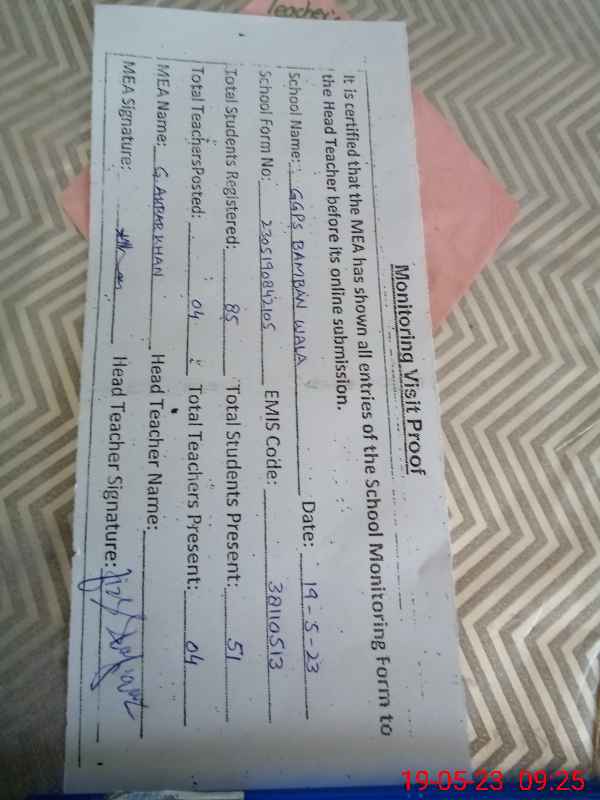 Teacher's
Monitoring Visit Proof
It is certified that the MEA has shown all entries of the School Monitoring Form to
the Head Teacher before its online submission.
School Name: GGPS BAMBAN WALA Date: 19-5-23
School Form No: 2305190842105 EMIS Code: 38110513
Total Students Registered: 85 Total Students Present: 51
Total TeachersPosted: 04 Total Teachers Present: 04
MEA Name: G. AKBAR KHAN Head Teacher Name:
MEA Signature: Head Teacher Signature:
19-05-23 09:25